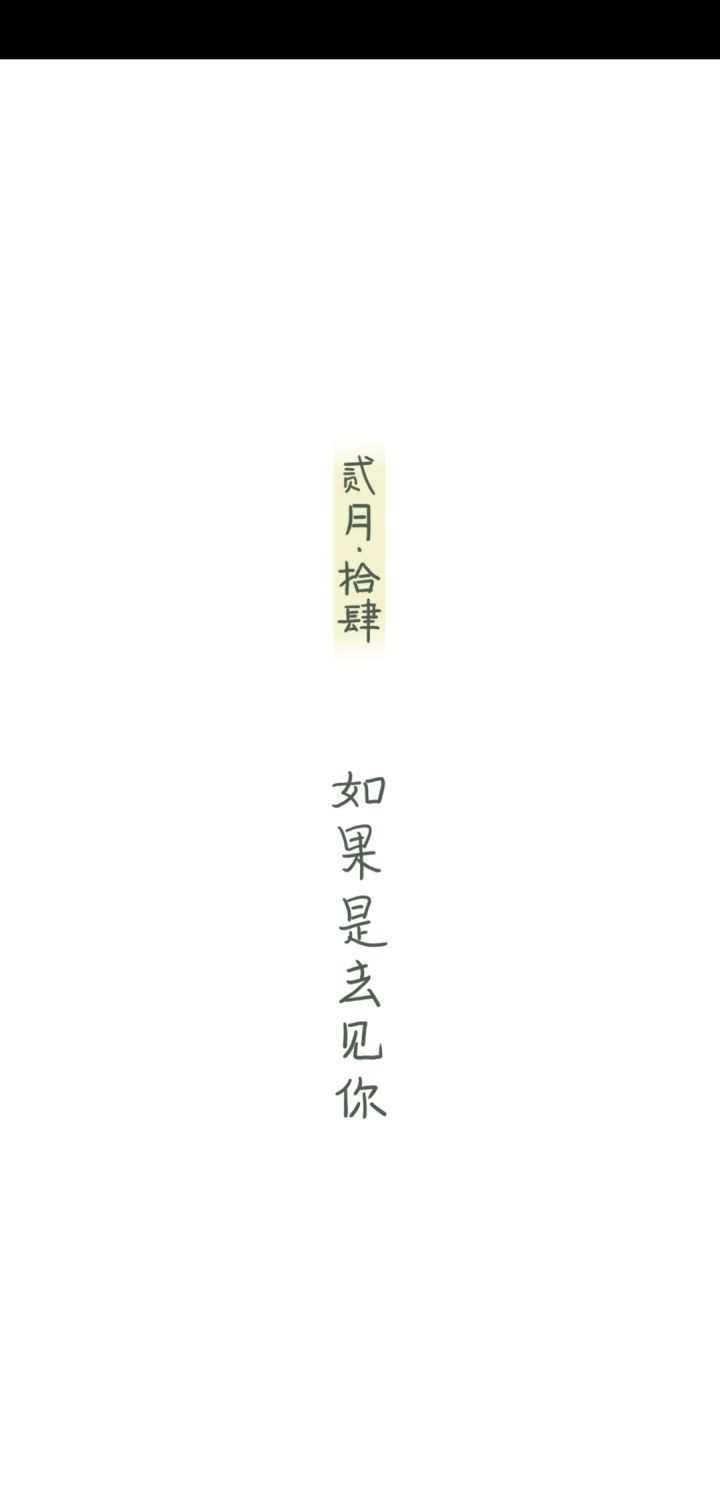 贰月·拾肆
如果是去见你